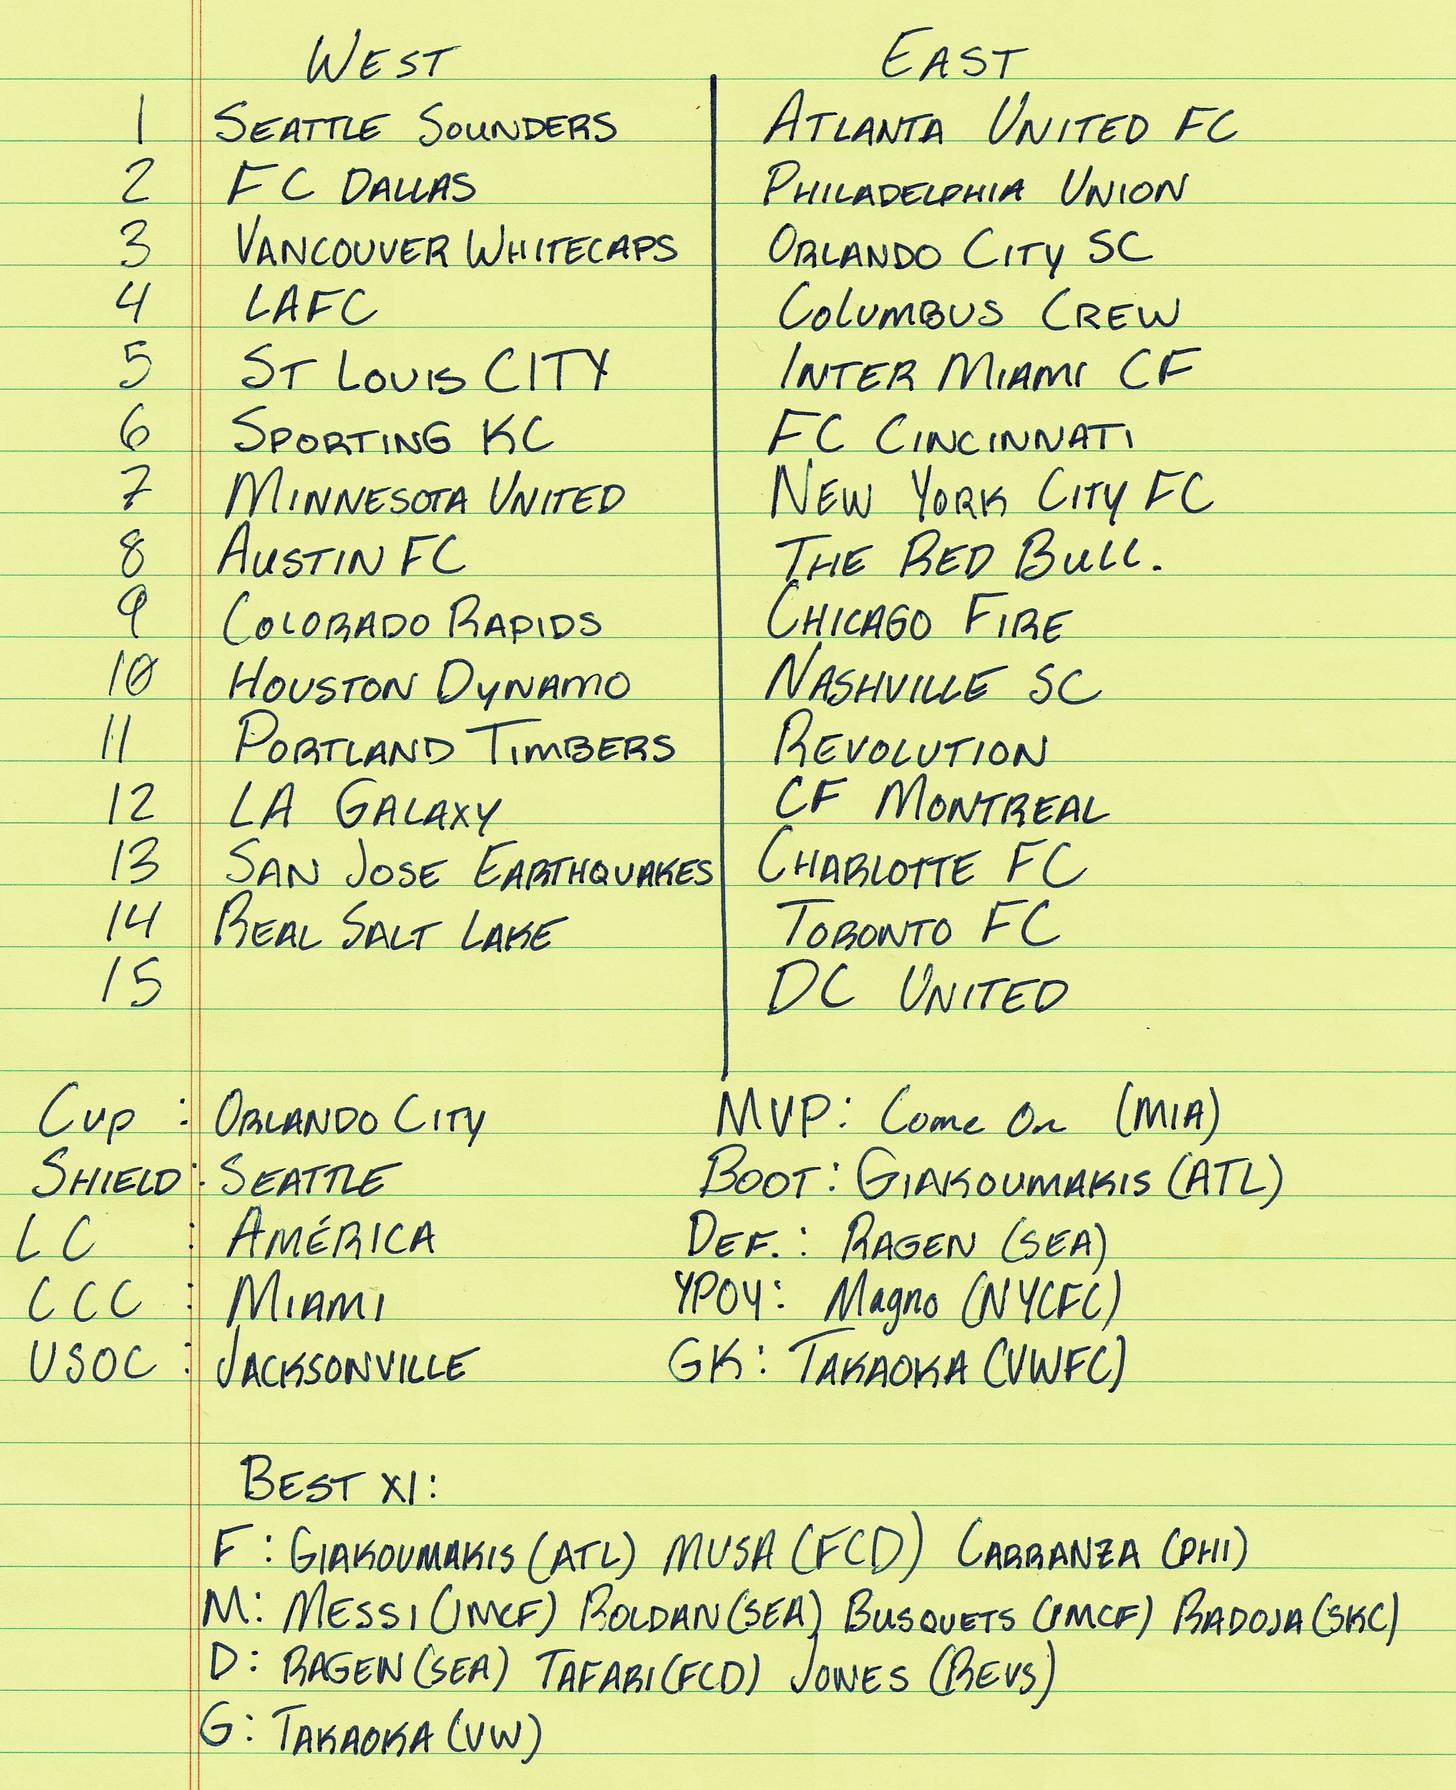 WEST EAST
1 SEATTLE SOUNDERS ATLANTA UNITED FC
2 FC DALLAS PHILADELPHIA UNION
3 VANCOUVER WHITECAPS ORLANDO CITY SC
4 LAFC COLUMBUS CREW
5 ST LOUIS CITY INTER MIAMI CF
6 SPORTING KC FC CINCINNATI
7 MINNESOTA UNITED NEW YORK CITY FC
8 AUSTIN FC THE RED BULL.
9 COLORADO RAPIDS CHICAGO FIRE
10 HOUSTON DYNAMO NASHVILLE SC
11 PORTLAND TIMBERS REVOLUTION
12 LA GALAXY CF MONTREAL
13 SAN JOSE EARTHQUAKES CHARLOTTE FC
14 REAL SALT LAKE TORONTO FC
15 DC UNITED
CUP : ORLANDO CITY MVP: Come On (MIA)
SHIELD: SEATTLE BOOT: GIAKOUMAKIS (ATL)
LC : AMÉRICA DEF.: RAGEN (SEA)
CCC : MIAMI YPOY: Magno (NYCFC)
USOC : JACKSONVILLE GK: TAKAOKA (VWFC)
BEST XI:
F: GIAKOUMAKIS (ATL) MUSA (FCD) CARRANZA (PHI)
M: MESSI (IMCF) ROLDAN (SEA) BUSQUETS (IMCF) RADOJA (SKC)
D: RAGEN (SEA) TAFARI (FCD) JONES (REVS)
G: TAKAOKA (VW)